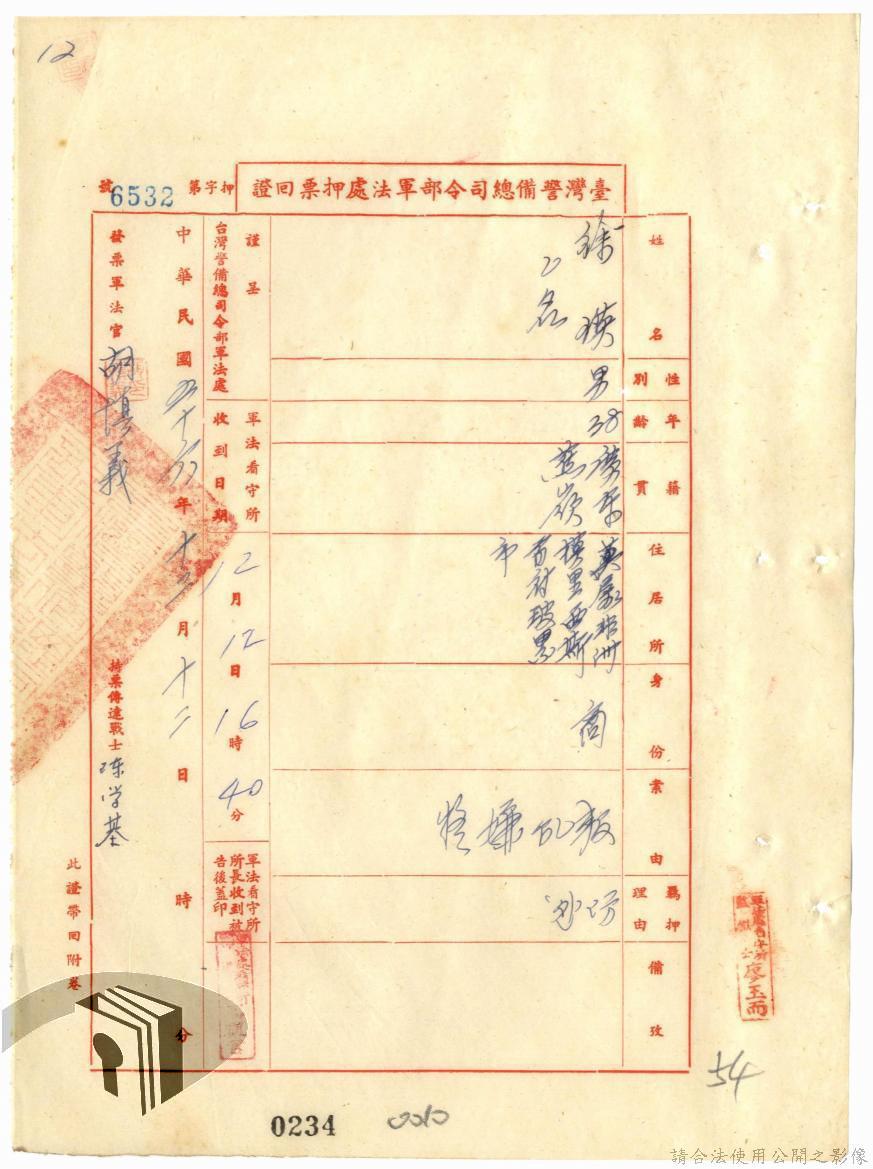 12
臺灣警備總司令部軍法處押票回證
押字第6532號
姓名
徐瑛
乙名
性別
男
年齡
38
籍貫
蕉嶺
住居所
英屬非洲
模里西斯
市
身份
商
案由
叛亂嫌疑
羈押理由
備攷
謹呈
台灣警備總司令部軍法處
軍法看守所收到日期
12月12日16時40分
軍法看守所所長收到被告後蓋印
中華民國五十六年十二月十二日時分
發票軍法官
持票傳達戰士
此證帶回附卷
廖玉而
54
0234
0010
請合法使用公開之影像